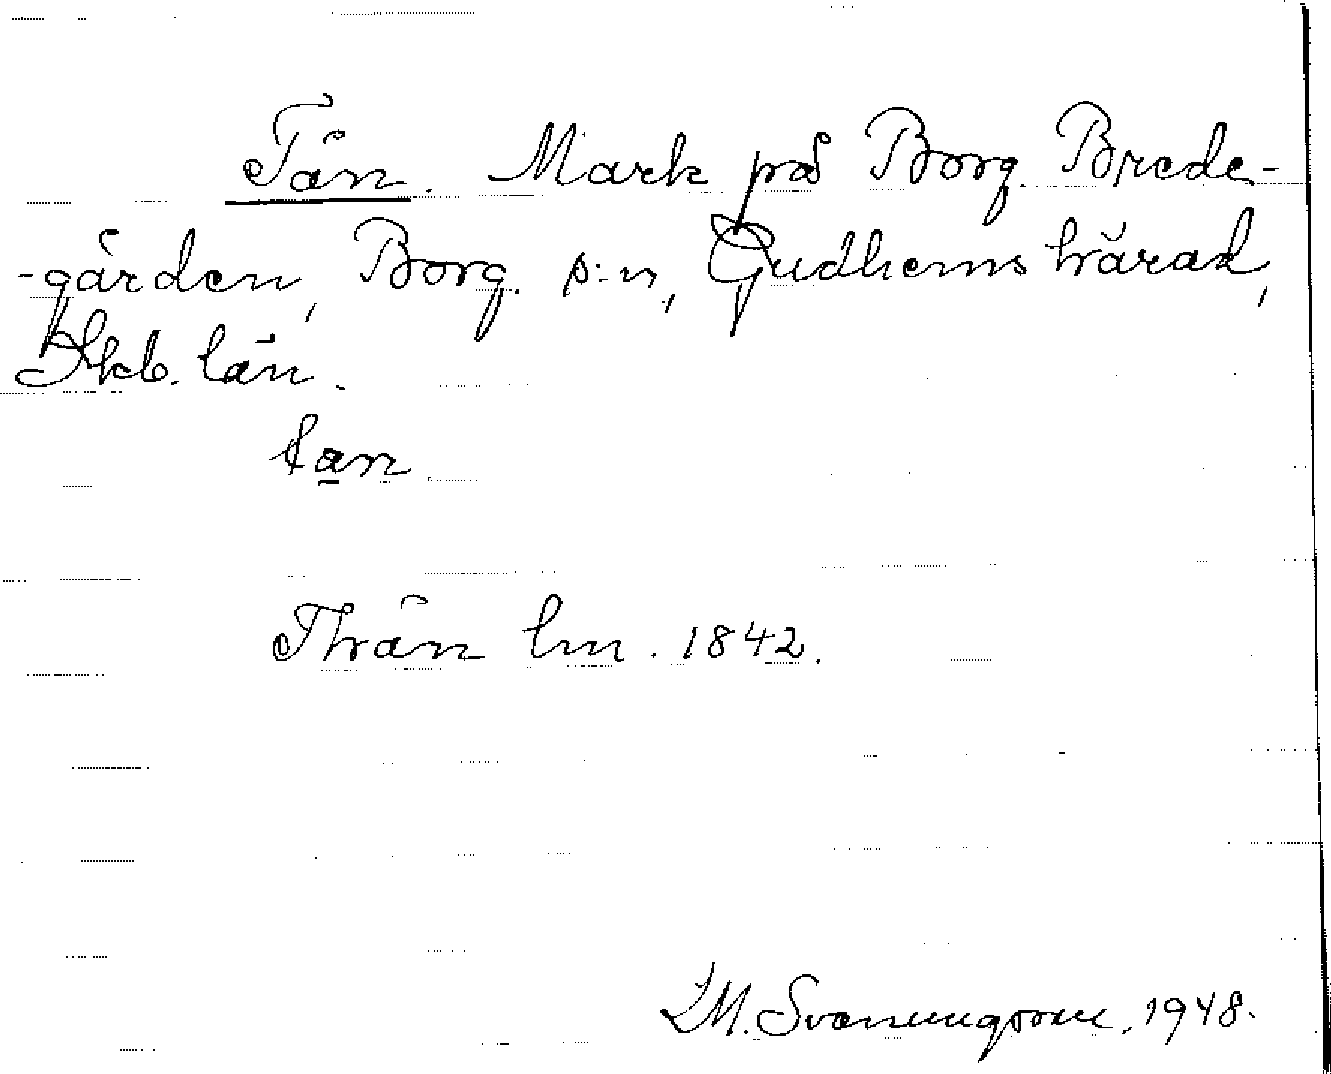 Tån. Mark på Borg. Brede-
-gården, Borg. s:n, Gudhems härad,
Skb. län.
tan
Thån lm. 1842.
LM. Svanungsson, 1948.